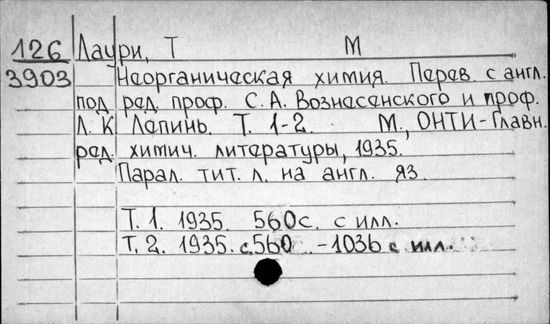 126 Лаури, Т М
3903 Неорганическая химия. Перев. с англ.
под ред. проф. С. А. Вознесенского и проф.
Л. К Лепинь. Т. 1-2. М., ОНТИ-Главн.
ред. химич. литературы, 1935.
Парал. тит. л. на англ. яз.
Т. 1. 1935. 560с. с илл.
Т. 2. 1935. с.560 -1036 с илл.